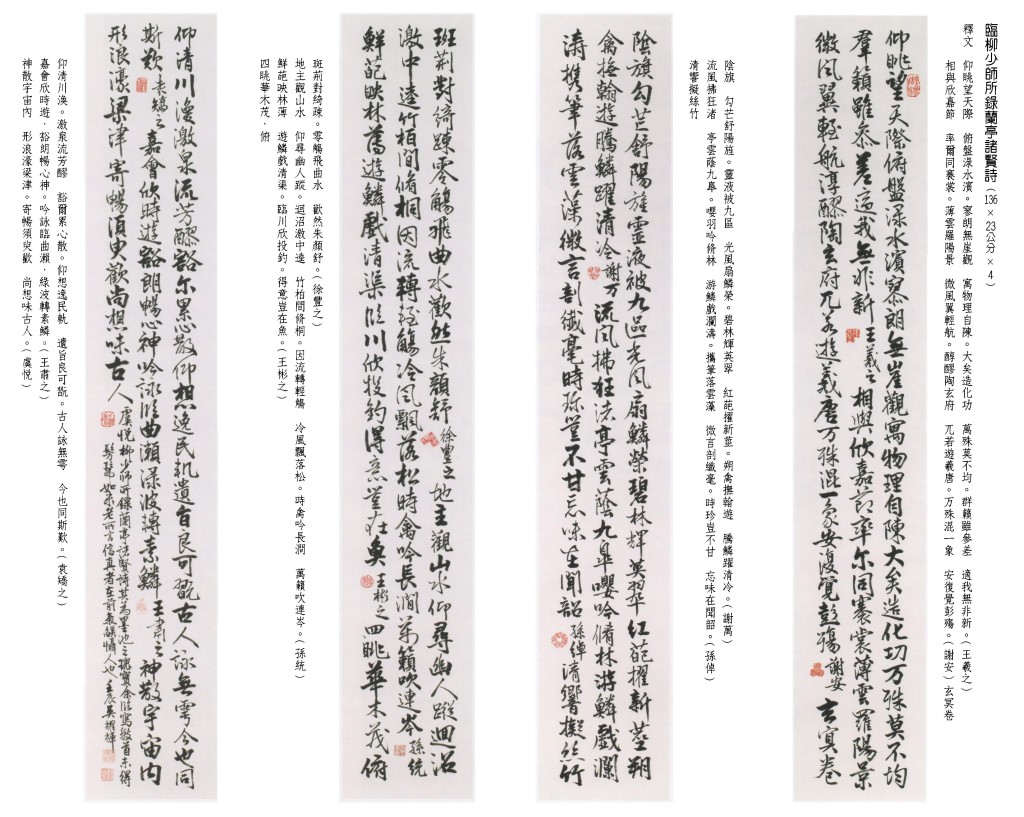 臨柳少師所錄蘭亭諸賢詩(136×23公分×4)
釋文 仰眺望天際 俯盤淥水濱。寥朗無崖觀 寓物理自陳。大矣造化功 萬殊莫不均。群籟雖參差 適我無非新。(王羲之)
相與欣嘉節 率爾同褰裳。薄雲羅陽景 微風翼輕航。醇醪陶玄府 兀若遊羲唐。万殊混一象 安復覺彭殤。(謝安)玄冥卷
仰眺望天際俯盤淥水濱寥朗無崖觀寓物理自陳大矣造化功万殊莫不均
羣籟雖參差適我無非新 王羲之 相與欣嘉節率尔同褰裳薄雲羅陽景
微風翼輕航淳醪陶玄府兀若遊羲唐万殊混一象安復覺彭殤 謝安 玄冥卷
陰旗 勾芒舒陽旌。靈液被九區 光風扇鱗榮。碧林輝英翠 紅葩擢新莖。朔禽撫翰遊 騰鱗躍清冷。(謝萬)
流風拂狂渚 亭雲蔭九臯。嚶羽吟脩林 游鱗戲瀾濤。攜筆落雲藻 微言剖纖毫。時珍豈不甘 忘味在聞韶。(孫倬)
清響擬絲竹
陰旗勾芒舒陽旌靈液被九區光風扇鱗榮碧林輝英翠紅葩擢新莖朔
禽撫翰遊騰鱗躍清冷 謝万 流風拂狂渚亭雲蔭九臯嚶吟脩林游鱗戲瀾
濤攜筆落雲藻微言剖纖毫時珎豈不甘忘味在聞韶 孫倬 清響擬丝竹
斑荊對綺疎。零觴飛曲水 歡然朱顏舒。(徐豐之)
地主觀山水 仰尋幽人蹤。迴沼激中逵 竹柏間脩桐。因流轉輕觴 冷風飄落松。時禽吟長澗 萬籟吹連岑。(孫統)
鮮葩映林薄 遊鱗戲清渠。臨川欣投釣。得意豈在魚。(王彬之)
四眺華木茂.俯
班荊對綺疎零觴飛曲水歡然朱顏舒 徐豐之 地主觀山水仰尋幽人蹤迴沼
激中逵竹柏間脩桐因流轉輕觴冷風飄落松時禽吟長澗万籟吹連岑 孫統
鮮葩映林薄遊鱗戲清渠臨川欣投釣得意豈在魚 王彬之 四眺華木茂俯
仰清川渙。激泉流芳醪 豁爾累心散。仰想逸民軌 遺旨良可翫。古人詠無雩 今也同斯歎。(袁矯之)
嘉會欣時遊.豁朗暢心神。吟詠臨曲瀨.綠波轉素鱗。(王肅之)
神散宇宙內 形浪濠梁津。寄暢須臾歡 尚想味古人。(虞悅)
仰清川渙激泉流芳醪豁尔累心散仰想逸民軌遺旨良可翫古人詠無雩今也同
斯歎 袁矯之 嘉會欣時遊豁朗暢心神吟詠臨曲瀨淥波轉素鱗 王肅之 神散宇宙內
形浪濠梁津寄暢須臾歡尚想味古人 虞悅 柳少師所錄蘭亭諸賢詩其為墨池之瑰寶余臨寫數首未得